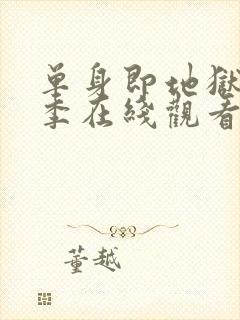 單身即地獄
季在綫觀看
董越